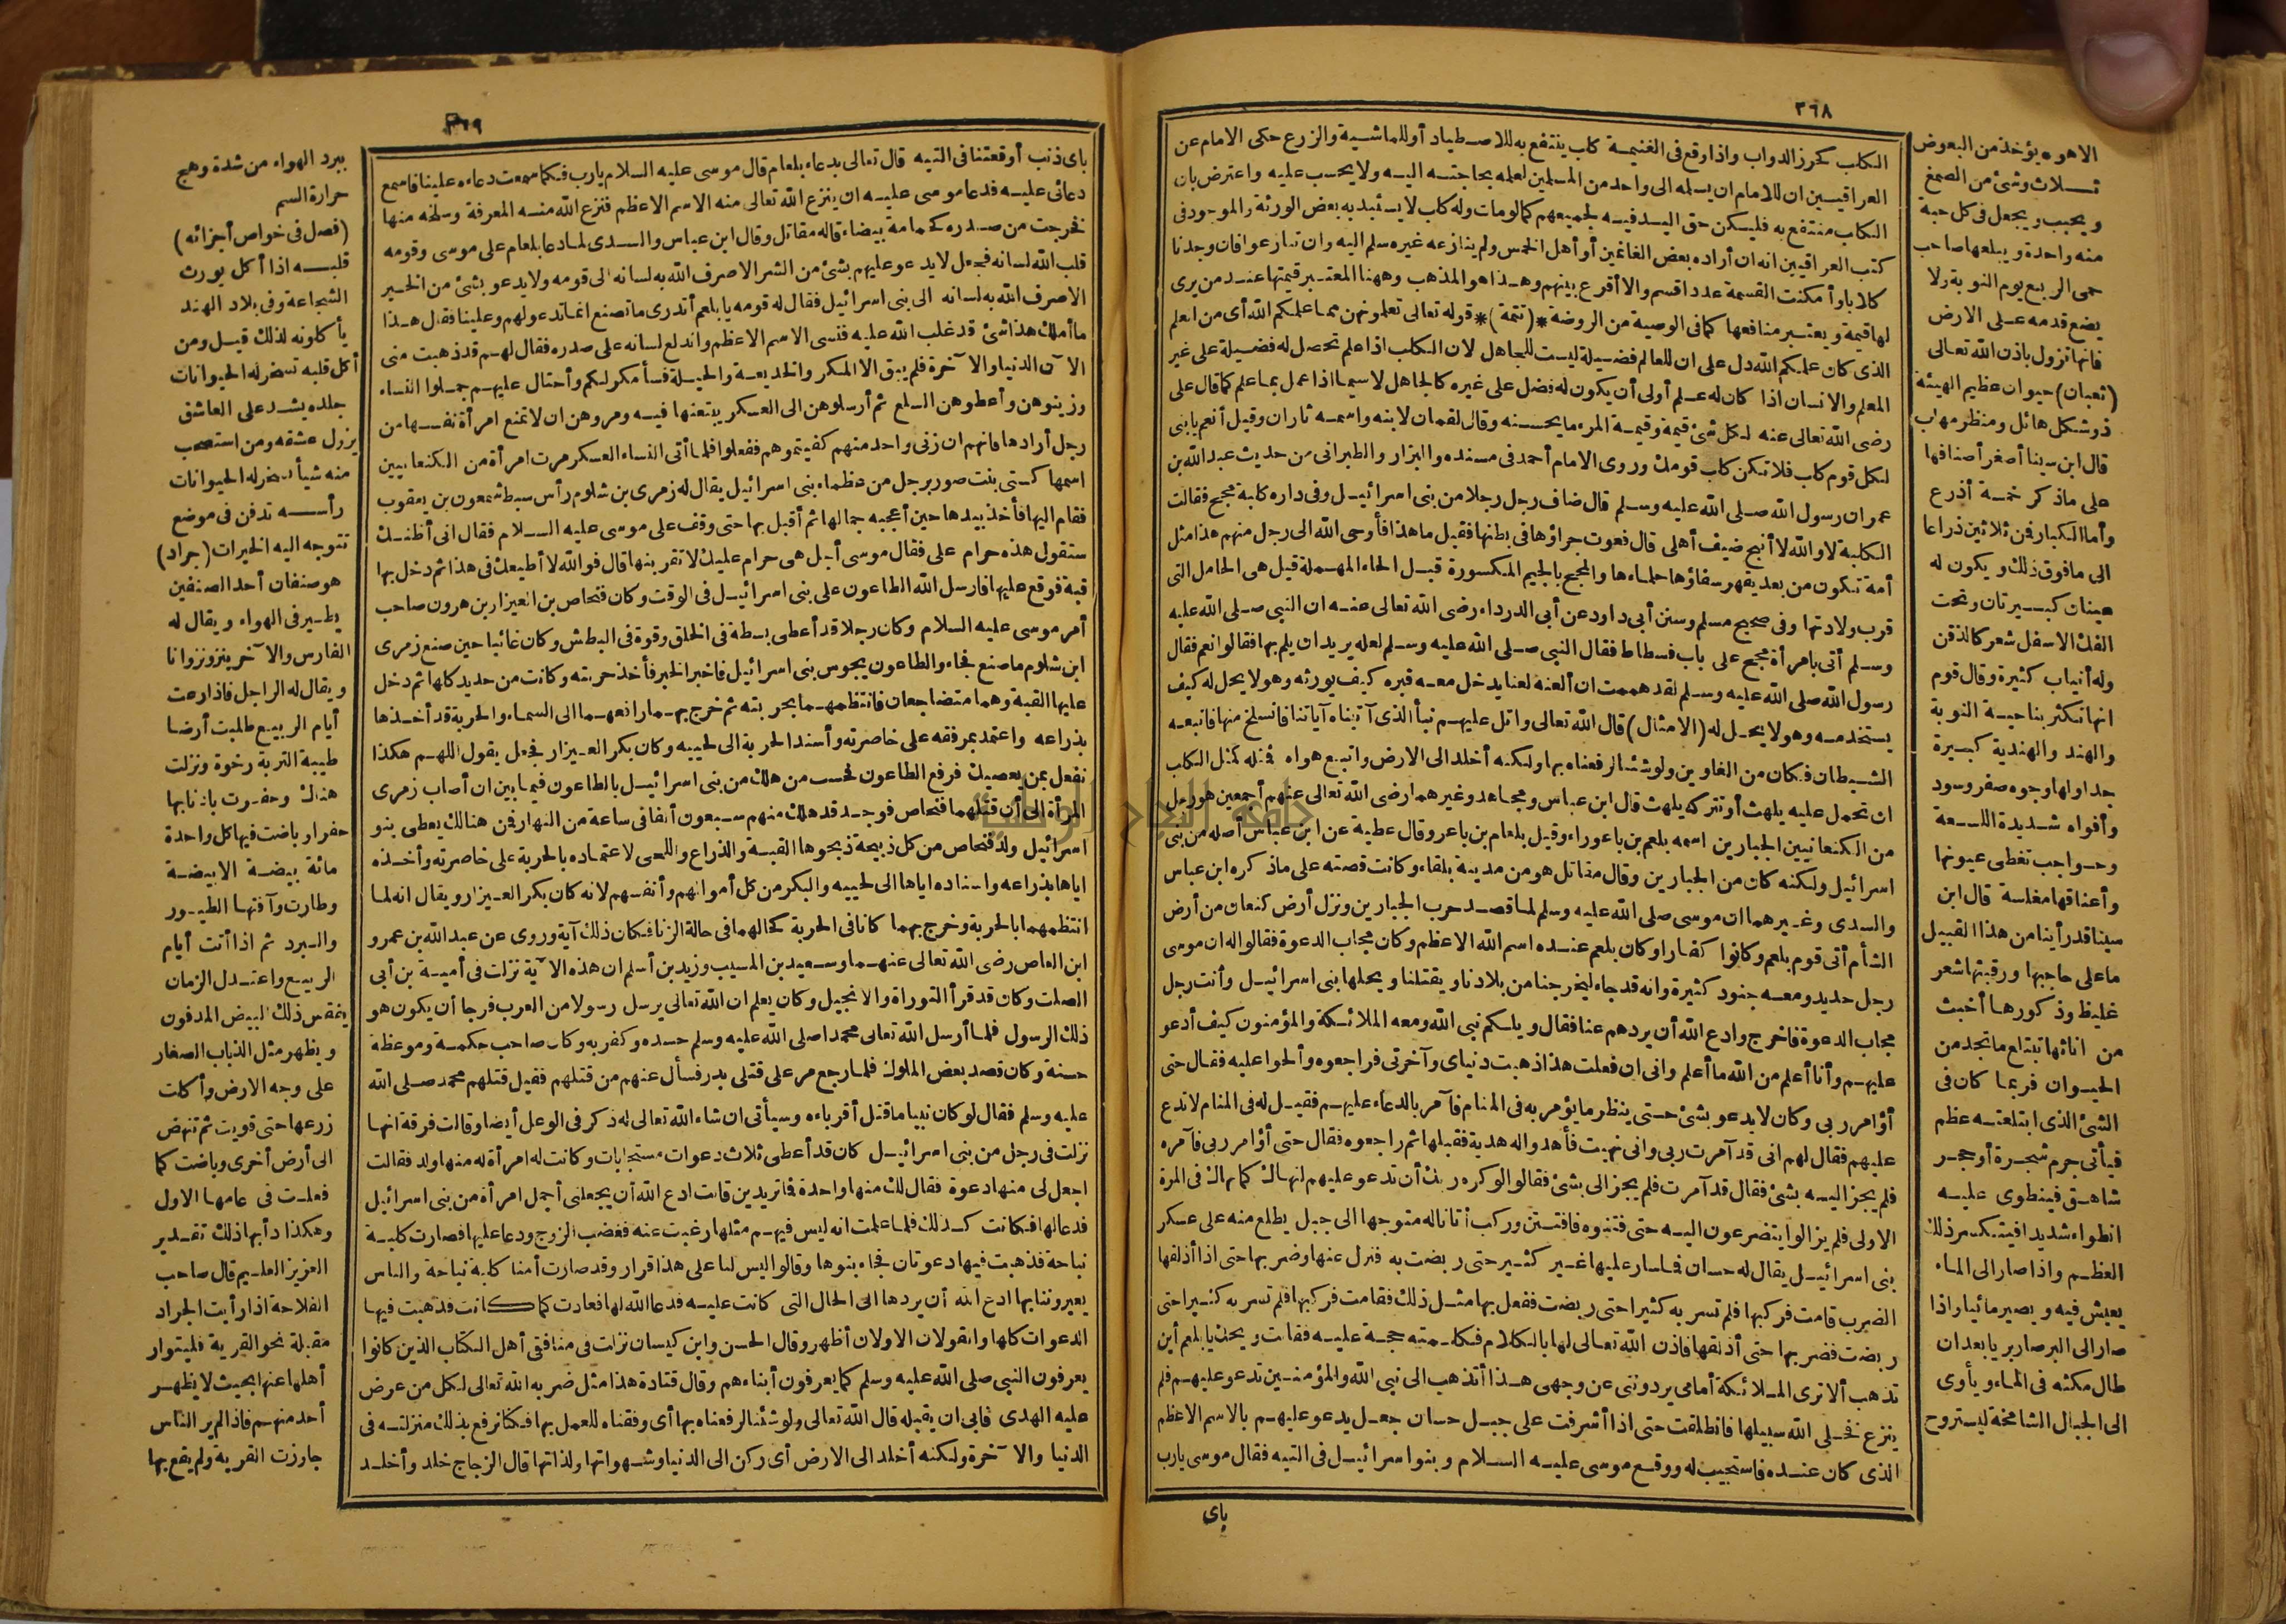 ٣٦٨
الكلاب كحرز الدواب واذا وقع فى الغنيمة كاب ينتفع به للاصطياد أو للماشية والزرع حكى الامام عن
العراقيين ان للامام ان يسلمه الى واحد من المسلمين لعلمه بحاجته اليه ولا يحسب عليه واعترض بان
الكلاب منتفع به فليكن حق اليد فيه لجميعهم كما لو مات وله كاب لا يستبد به بعض الورثة والموجود فى
كتب العراقيين انه ان أراده بعض الغانمين أو أهل الخمس ولم ينازعه غيره سلم اليه وان تنازعوا فان وجدنا
كلابا وأمكنت القسمة عددا قسم والا أقرع بينهم وهذا هو المذهب وههنا المعتبر قيمتها عند من يرى
لها قيمة ويعتبر منافعها كما فى الوصية من الروضة *(تتمة)* قوله تعالى تعلمونهن مما علمكم الله أى من العلم
الذى كان علمكم الله دل على ان للعالم فضيلة ليست للجاهل لان الكلب اذا علم تحصل له فضيلة على غير
المعلم والانسان اذا كان له علم أولى أن يكون له فضل على غيره كالجاهل لا سيما اذا عمل بما علم كما قال على
رضى الله تعالى عنه لكل شئ قيمة وقيمة المرء ما يحسنه وقال لقمان لابنه واسمه ثاران وقيل أنعم يا بنى
لكل قوم كاب فلا تكن كاب قومك وروى الامام أحمد فى مسنده والبزار والطبرانى من حديث عبد الله بن
عمر ان رسول الله صلى الله عليه وسلم قال ضاف رجل رجلا من بنى اسرائيل وفى داره كلبة مجح فقالت
الكلبة لا والله لا أنبح ضيف أهلى قال فعوت جراؤها فى بطنها فقيل ما هذا فأوحى الله الى رجل منهم هذا مثل
أمة تكون من بعد يقهر سفاؤها حلماءها والمجح بالجيم المكسورة قبل الحاء المهملة قيل هى الحامل التى
قرب ولادتها وفى صحيح مسلم وسنن أبى داود عن أبى الدرداء رضى الله تعالى عنه ان النبى صلى الله عليه
وسلم أتى بامرأة مجح على باب فسطاط فقال النبى صلى الله عليه وسلم لعله يريد ان يلم بها فقالوا نعم فقال
رسول الله صلى الله عليه وسلم لقد هممت ان ألعنه لعنا يدخل معه قبره كيف يورثه وهو لا يحل له كيف
يستخدمه وهو لا يحل له (الامثال) قال الله تعالى واتل عليهم نبأ الذى آتيناه آياتنا فانسلخ منها فاتبعه
الشيطان فكان من الغاوين ولو شئنا لرفعناه بها ولكنه أخلد الى الارض واتبع هواه فمثله كمثل الكلب
ان تحمل عليه يلهث أو تتركه يلهث قال ابن عباس ومجاهد وغيرهما رضى الله تعالى عنهم أجمعين هو رجل
من الكنعانيين الجبارين اسمه بلعم بن باعوراء وقيل بلعام بن باعر وقال عطية عن ابن عباس أصله من بنى
اسرائيل ولكنه كان من الجبارين وقال مقاتل هو من مدينة بلقاء وكانت قصته على ما ذكره ابن عباس
والسدى وغيرهما ان موسى صلى الله عليه وسلم لما قصد حرب الجبارين ونزل أرض كنعان من أرض
الشأم أتى قوم بلعم وكانوا كفارا وكان بلعم عنده اسم الله الاعظم وكان مجاب الدعوة فقالوا له ان موسى
رجل حديد ومعه جنود كثيرة وانه قد جاء ليخرجنا من بلادنا ويقتلنا ويحلها بنى اسرائيل وأنت رجل
مجاب الدعوة فاخرج وادع الله أن يردهم عنا فقال ويلكم نبى الله ومعه الملائكة والمؤمنون كيف أدعو
عليهم وأنا أعلم من الله ما أعلم وانى ان فعلت هذا ذهبت دنياى وآخرتى فراجعوه وألحوا عليه فقال حتى
أؤامر ربى وكان لا يدعو بشئ حتى ينظر ما يؤمر به فى المنام فآمر بالدعاء عليهم فقيل له فى المنام لا تدع
عليهم فقال لهم انى قد آمرت ربى وانى نهيت فأهدوا له هدية فقبلها ثم راجعوه فقال حتى أؤامر ربى فآمره
فلم يجز اليه بشئ فقال قد آمرت فلم يجز الى بشئ فقالوا لو كره ربك أن تدعو عليهم لنهاك كما نهاك فى المرة
الاولى فلم يزالوا يتضرعون اليه حتى فتنوه فافتتن وركب أتانا له متوجها الى جبل يطلع منه على عسكر
بنى اسرائيل يقال له حسان فما سار عليها غير كثير حتى ربضت به فنزل عنها وضربها حتى اذا أذلقها
الضرب قامت فركبها فلم تسر به كثيرا حتى ربضت ففعل بها مثل ذلك فقامت فركبها فلم تسر به كثيرا حتى
ربضت فضربها حتى أذلقها فاذن الله تعالى لها بالكلام فكلمته حجة عليه فقالت ويحك يا بلعم أين
تذهب ألا ترى الملائكة أمامى يردونى عن وجهى هذا أتذهب الى نبى الله والمؤمنين تدعو عليهم فلم
ينزع فخلى الله سبيلها فانطلقت حتى اذا أشرفت على جبل حسان جعل يدعو عليهم بالاسم الاعظم
الذى كان عنده فاستجيب له ووقع موسى عليه السلام وبنو اسرائيل فى التيه فقال موسى يا رب
باى
الاهوه يؤخذ من البعوض
ثلاث وشئ من الصمغ
ويحبب ويجعل فى كل حبة
منه واحدة ويبلعها صاحب
حمى الربيع يوم النوبة ولا
يضع قدمه على الارض
فانها تزول باذن الله تعالى
(ثعبان) حيوان عظيم الهيئة
ذو شكل هائل ومنظر مهاب
قال ابن سينا أصغر أصنافها
على ما ذكر خمسة أذرع
وأما الكبار فمن ثلاثين ذراعا
الى ما فوق ذلك ويكون له
عينان كبيرتان وتحت
الفك الاسفل شعر كالذقن
وله أنياب كثيرة وقال قوم
انها تكثر بناحية النوبة
والهند والهندية كبيرة
جدا ولها وجوه صفر وسود
وأفواه شديدة السعة
وحواجب تغطى عيونها
وأعناقها مفلسة قال ابن
سينا قد رأينا من هذا القبيل
ما على حاجبها ورقبتها شعر
غليظ وذكورها أخبث
من اناثها تبتلع ما تجد من
الحيوان فربما كان فى
الشئ الذى ابتلعته عظم
فيأتى جرم شجرة أو حجر
شاهق فينطوى عليه
انطواء شديدا فيتكسر ذلك
العظم واذا صار الى الماء
يعيش فيه ويصير مائيا واذا
صار الى البر صار بريا بعد ان
طال مكثه فى الماء ويأوى
الى الجبال الشامخة ليستروح
٣٦٩
باى ذنب أوقعتنا فى التيه قال تعالى بدعاء بلعام قال موسى عليه السلام يا رب فكما سمعت دعاءه علينا فاسمع
دعائى عليه فدعا موسى عليه ان ينزع الله تعالى منه الاسم الاعظم فنزع الله منه المعرفة وسلخه منها
فخرجت من صدره كحمامة بيضاء قاله مقاتل وقال ابن عباس والسدى لما دعا بلعام على موسى وقومه
قلب الله لسانه فجعل لا يدعو عليهم بشئ من الشر الا صرف الله به لسانه الى قومه ولا يدعو بشئ من الخير
الا صرف الله به لسانه الى بنى اسرائيل فقال له قومه يا بلعم أتدرى ما تصنع انما تدعو لهم وعلينا فقال هذا
ما أملك هذا شئ قد غلب الله عليه فنسى الاسم الاعظم واندلع لسانه على صدره فقال لهم قد ذهبت منى
الآن الدنيا والآخرة فلم يبق الا المكر والخديعة والحيلة فسأمكر لكم وأحتال عليهم جملوا النساء
وزينوهن وأعطوهن السلع ثم أرسلوهن الى العسكر يبتعنها فيه ومروهن ان لا تمنع امرأة نفسها من
رجل أرادها فانهم ان زنى واحد منهم كفيتموهم ففعلوا فلما أتى النساء العسكر مرت امرأة من الكنعانيين
اسمها كستى بنت صور برجل من عظماء بنى اسرائيل يقال له زمرى بن شلوم رأس سبط شمعون بن يعقوب
فقام اليها فأخذ بيدها حين أعجبه جمالها ثم أقبل بها حتى وقف على موسى عليه السلام فقال انى أظنك
ستقول هذه حرام على فقال موسى أجل هى حرام عليك لا تقربنها قال فو الله لا أطيعك فى هذا ثم دخل بها
قبة فوقع عليها فارسل الله الطاعون على بنى اسرائيل فى الوقت وكان فنحاص بن العيزار بن هرون صاحب
أمر موسى عليه السلام وكان رجلا قد أعطى بسطة فى الخلق وقوة فى البطش وكان غائبا حين صنع زمرى
ابن شلوم ما صنع فجاء والطاعون يجوس بنى اسرائيل فاخبر الخبر فأخذ حربته وكانت من حديد كلها ثم دخل
عليها القبة وهما متضاجعان فانتظمهما بحربته ثم خرج بهما رافعهما الى السماء والحربة قد أخذها
بذراعه واعتمد بمرفقه على خاصرته وأسند الحربة الى لحييه وكان بكر العيزار فجعل يقول اللهم هكذا
نفعل بمن يعصيك فرفع الطاعون فحسب من هلك من بنى اسرائيل بالطاعون فيما بين ان أصاب زمرى
المرأة الى أن قتلهما فنحاص فوجد قد هلك منهم سبعون ألفا فى ساعة من النهار فمن هنالك يعطى بنو
اسرائيل ولد فنحاص من كل ذبيحة ذبحوها القبة والذراع واللحى لاعتماده بالحربة على خاصرته وأخذه
اياها بذراعه واسناده اياها الى لحييه والبكر من كل أموالهم وأنفسهم لانه كان بكر العيزار ويقال انه لما
انتظمهما بالحربة وخرج بهما كانا فى الحربة كحالهما فى حالة الزنا فكان ذلك آية وروى عن عبد الله بن عمرو
ابن العاص رضى الله تعالى عنهما وسعيد بن المسيب وزيد بن أسلم ان هذه الآية نزلت فى أمية بن أبى
الصلت وكان قد قرأ التوراة والانجيل وكان يعلم ان الله تعالى يرسل رسولا من العرب فرجا أن يكون هو
ذلك الرسول فلما أرسل الله تعالى محمدا صلى الله عليه وسلم حسده وكفر به وكان صاحب حكمة وموعظة
حسنة وكان قصد بعض الملوك فلما رجع مر على قتلى بدر فسأل عنهم من قتلهم فقيل قتلهم محمد صلى الله
عليه وسلم فقال لو كان نبيا ما قتل أقرباءه وسيأتى ان شاء الله تعالى له ذكر فى الوعل أيضا وقالت فرقة انها
نزلت فى رجل من بنى اسرائيل كان قد أعطى ثلاث دعوات مستجابات وكانت له امرأة له منها ولد فقالت
اجعل لى منها دعوة فقال لك منها واحدة فما تريدين قالت ادع الله أن يجعلنى أجمل امرأة من بنى اسرائيل
فدعا لها فكانت كذلك فلما علمت انه ليس فيهم مثلها رغبت عنه فغضب الزوج ودعا عليها فصارت كلبة
نباحة فذهبت فيها دعوتان فجاء بنوها وقالوا ليس لنا على هذا قرار وقد صارت أمنا كلبة نباحة والناس
يعيروننا بها ادع الله أن يردها الى الحال التى كانت عليه فدعا الله لها فعادت كما كانت فذهبت فيها
الدعوات كلها والقولان الاولان أظهر وقال الحسن وابن كيسان نزلت فى منافقى أهل الكتاب الذين كانوا
يعرفون النبى صلى الله عليه وسلم كما يعرفون أبناءهم وقال قتادة هذا مثل ضربه الله تعالى لكل من عرض
عليه الهدى فابى ان يقبله قال الله تعالى ولو شئنا لرفعناه بها أى وفقناه للعمل بها فكنا نرفع بذلك منزلته فى
الدنيا والآخرة ولكنه أخلد الى الارض أى ركن الى الدنيا وشهواتها ولذاتها قال الزجاج خلد وأخلد
ببرد الهواء من شدة وهج
حرارة السم
(فصل فى خواص أجزائه)
قلبه اذا أكل يورث
الشجاعة وفى بلاد الهند
يأكلونه لذلك قيل ومن
أكل قلبه تسخر له الحيوانات
جلده يشد على العاشق
يزول عشقه ومن استصحب
منه شيأ تسخر له الحيوانات
رأسه تدفن فى موضع
تتوجه اليه الخيرات (جراد)
هو صنفان أحد الصنفين
يطير فى الهواء ويقال له
الفارس والآخر ينزو نزوانا
ويقال له الراجل فاذا رعت
أيام الربيع طلبت أرضا
طيبة التربة رخوة ونزلت
هناك وحفرت باذنابها
حفرا وباضت فيها كل واحدة
مائة بيضة الابيضة
وطارت وآفتها الطيور
والبرد ثم اذا أتت أيام
الربيع واعتدل الزمان
ينفقس ذلك البيض المدفون
ويظهر مثل الذباب الصغار
على وجه الارض وأكلت
زرعها حتى قويت ثم تنهض
الى أرض أخرى وباضت كما
فعلت فى عامها الاول
وهكذا دأبها ذلك تقدير
العزيز العليم قال صاحب
الفلاحة اذا رأيت الجراد
مقبلة نحو القرية فليتوار
أهلها عنها بحيث لا يظهر
أحد منهم فاذا لم ير الناس
جاوزت القرية ولم يقع بها
جامعة النجاح الوطنية